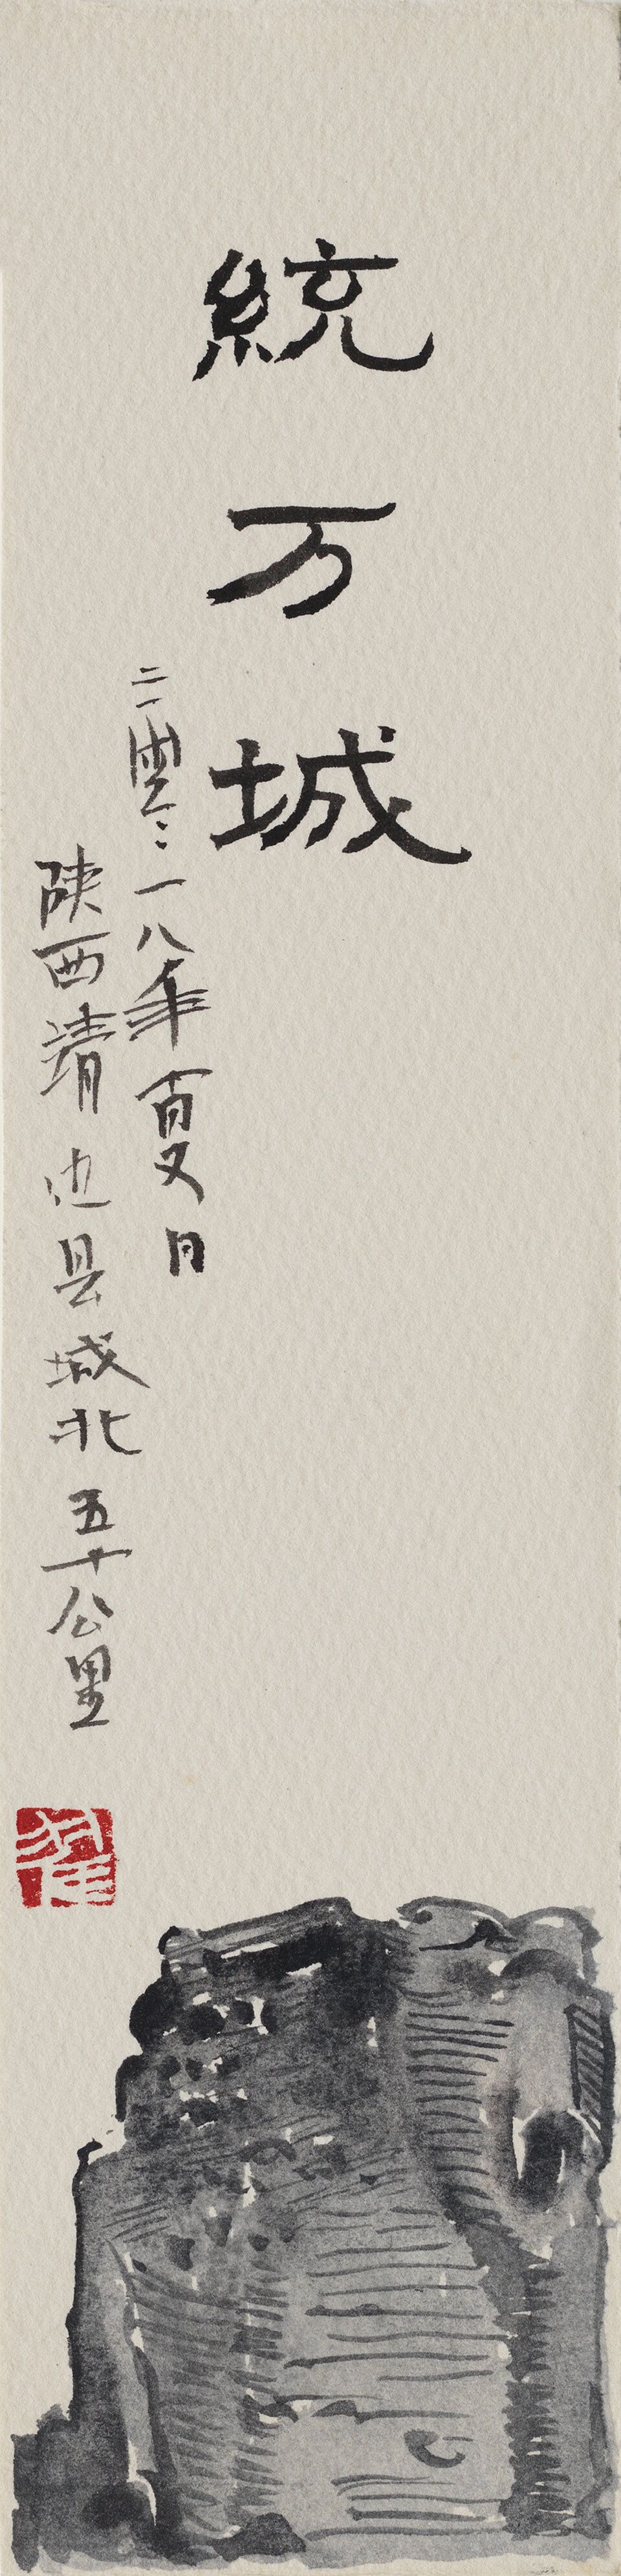 統万城
二零一八年夏日
陕西靖边县城北五十公里